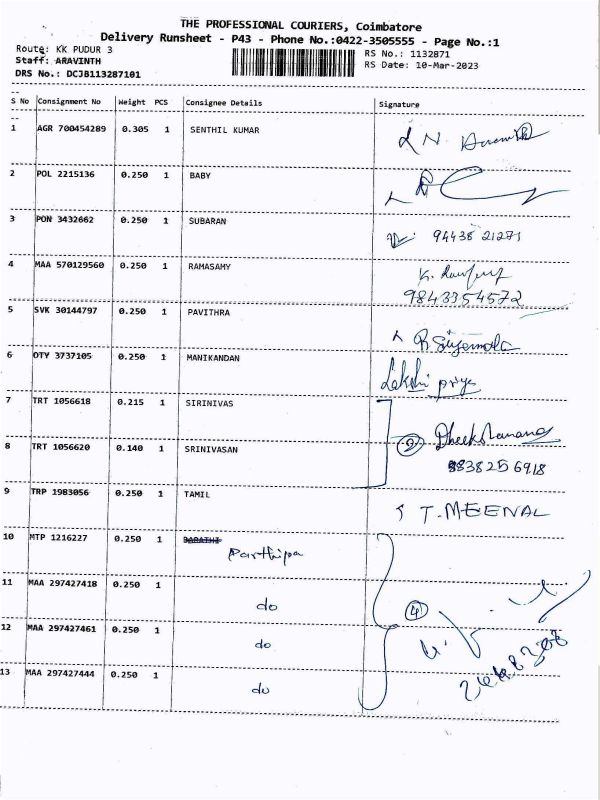 THE PROFESSIONAL COURIERS, Coimbatore
Delivery Runsheet - P43 - Phone No.:0422-3505555 - Page No.:1
Route: KK PUDUR 3 RS No.: 1132871
Staff: ARAVINTH RS Date: 10-Mar-2023
DRS No.: DCJB113287101
S No Consignment No Weight PCS Consignee Details Signature
1 AGR 700454289 0.305 1 SENTHIL KUMAR
2 POL 2215136 0.250 1 BABY
3 PON 3432662 0.250 1 SUBARAN 94438 21271
4 MAA 570129560 0.250 1 RAMASAMY
9843354572
5 SVK 30144797 0.250 1 PAVITHRA
6 OTY 3737105 0.250 1 MANIKANDAN Lakshi priya
7 TRT 1056618 0.215 1 SIRINIVAS
8 TRT 1056620 0.140 1 SRINIVASAN
9 TRP 1983056 0.250 1 TAMIL T. MEENAL
10 MTP 1216227 0.250 1
Parthipa
11 MAA 297427418 0.250 1
do 4
12 MAA 297427461 0.250 1
do
13 MAA 297427444 0.250 1
do